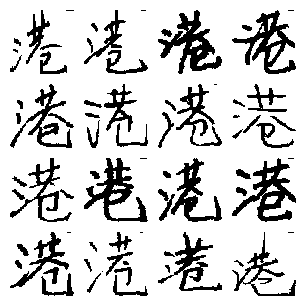 港港港港
港港港港
港港港港
港港港港